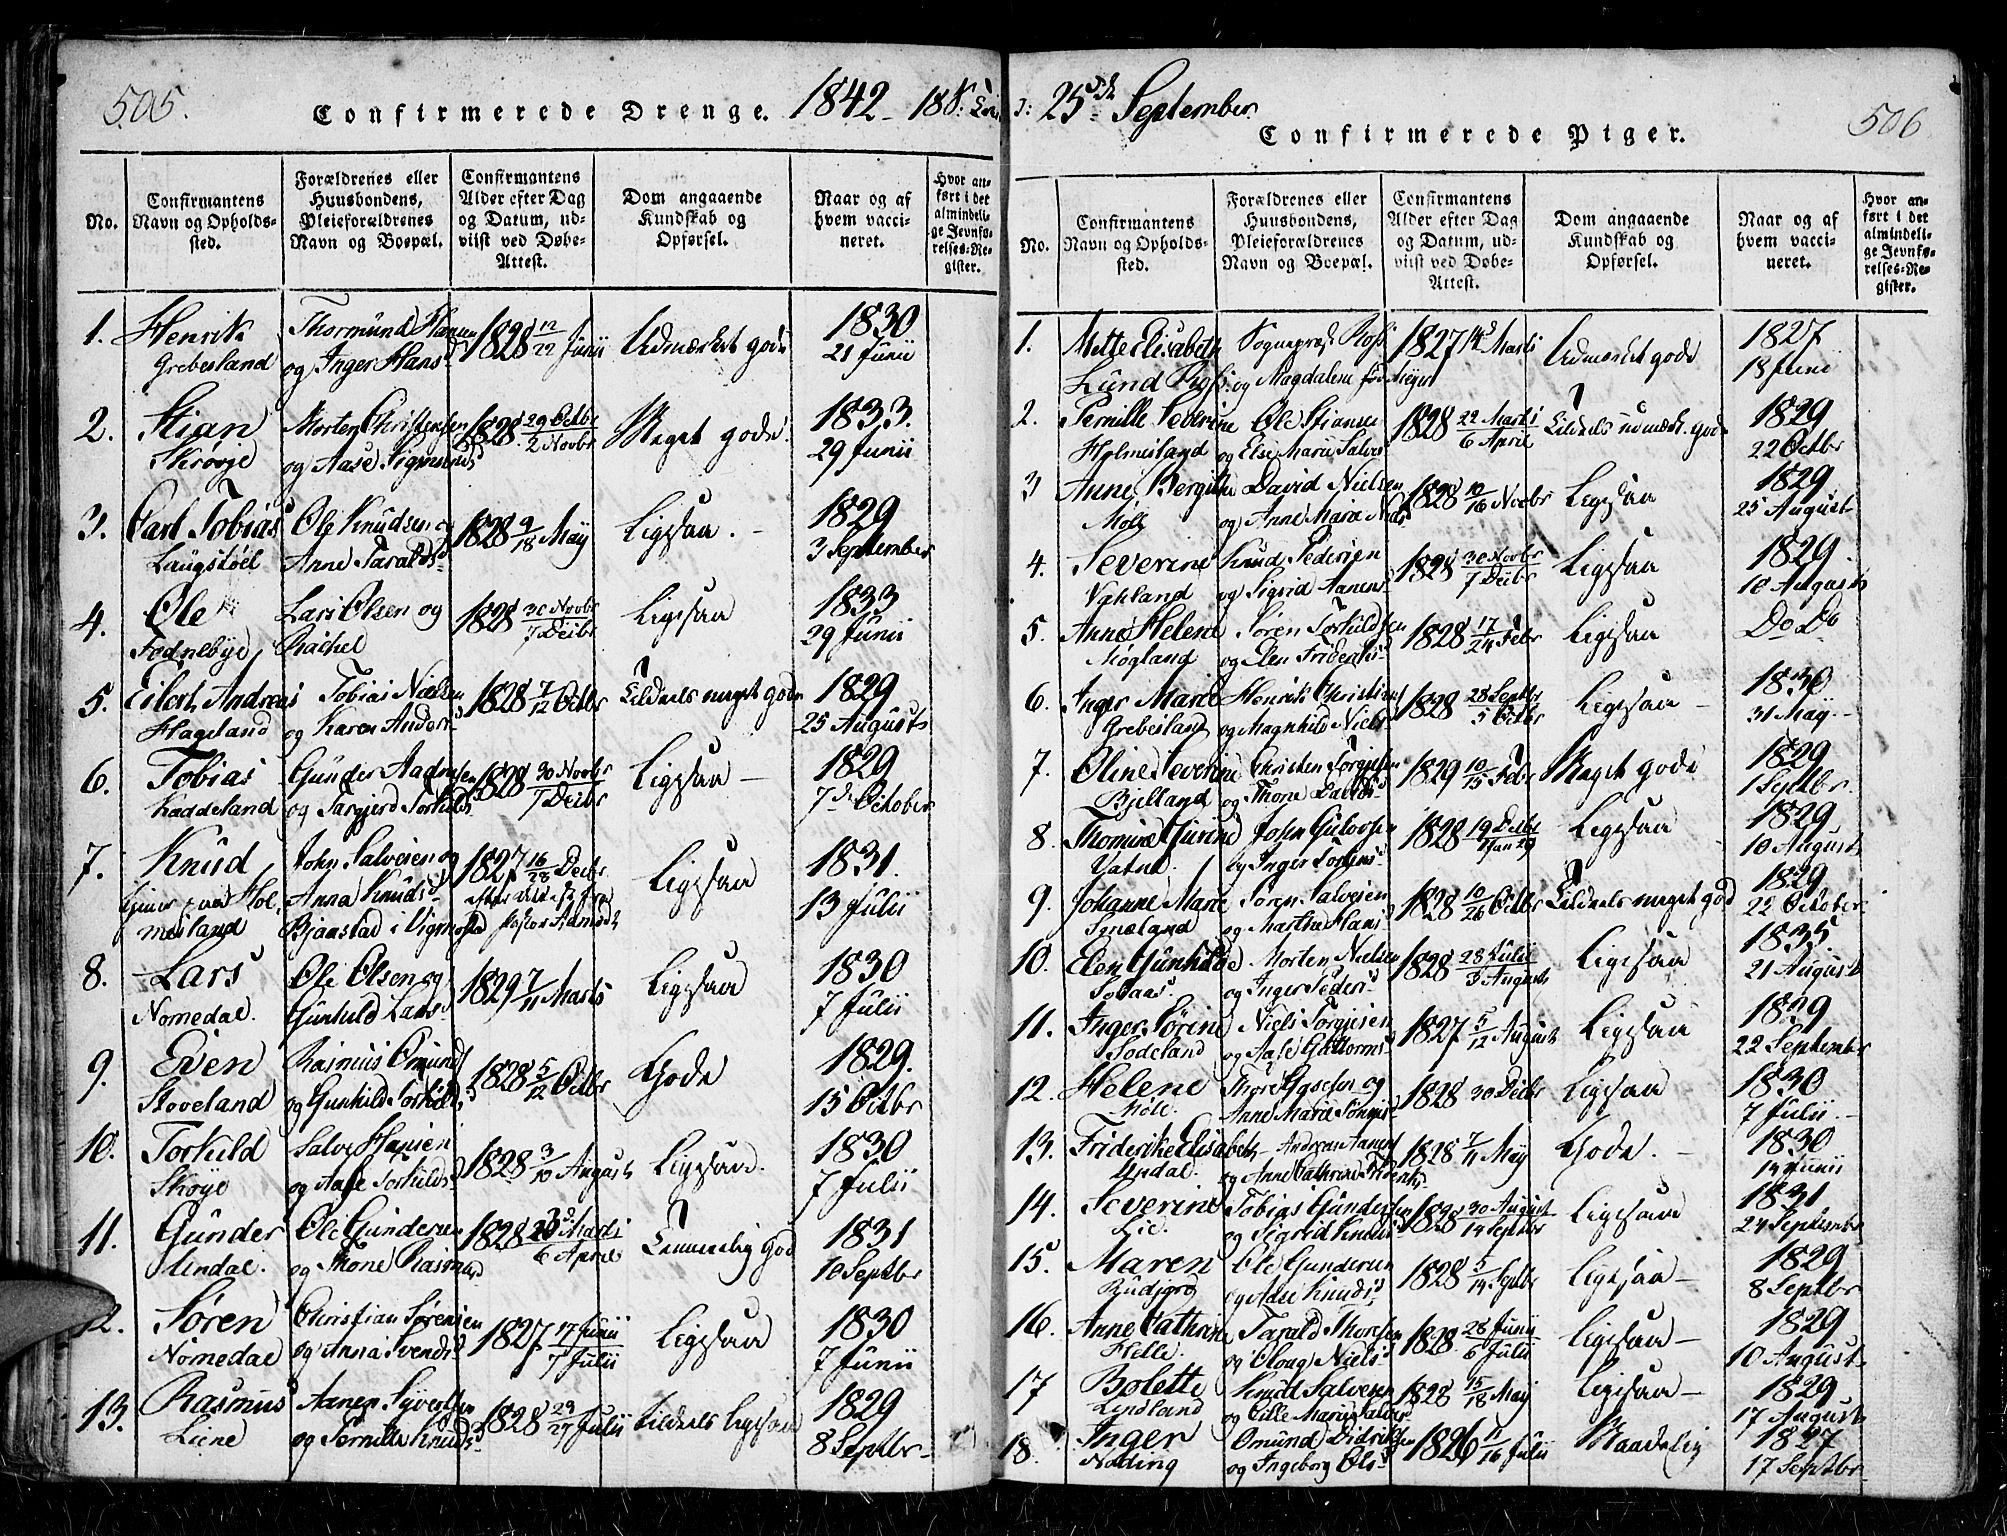 505.
Confirmerede Drenge. 1842 -
No.
Confirmantens Navn og Opholdssted.
Forældrenes eller Huusbondens, Pleieforældrenes Navn og Boepæl.
Confirmantens Alder efter Dag og Datum, udviist ved Døbe-Attest.
Dom angaaende Kundskab og Opførsel.
Naar og af hvem vaccineret.
Hvor anført i det almindelige Jevnførelses-Register.
1. Henrik Thormund Hansen 1828 12/22 Junii Udmærket gode 1830
Grebesland og Inger Hansd 21 Junii
2. Stian Morten Christensen 1828 29 Octbr / 2 Novbr Meget gode. 1833.
og Aase 29 Junii
3. Carl Tobias Ole Knudsen og 1828 9/18 May Ligesaa. - 1829
Laugstøel Anne Taraldsd 3 September
4. Ole Lars Olsen og 1828 30 Novbr / 7 Decbr Ligesaa 1833
Fodnebye Rachel 29 Junii
5. Eilert Andreas Tobias Nielsen 1828 7/12 Octbr Tildeels meget gode 1829
Hageland og Karen Andersd 25 Augusts
6. Tobias Gunder Aadnesen 1828 30 Novbr / 7 Decbr Ligesaa - 1829
Laddeland og Targjerd Torkildsd 7de October
7. Knud John Salvesen og 1827 16/28 Decbr Ligesaa 1831.
Anna Knudsd 13 Julii
Bjaastad i Vigmosted
8. Lars Ole Olsen og 1829 7/11 Marts Ligesaa 1830
Nomedal. Gunhild Larsd 7 Julii
9. Even Rasmus Omunds 1828 5/12 Octbr Gode 1829.
Stoveland og Gunhild Torkildsd 15 Octbr
10. Torkild Salve Hansen 1828 3/10 Augusts Ligesaa. 1830
Skøye og Aase Torkildsd 7 Julii
11. Gunder Ole Gundersen 1828 Marts / 6 Aprile Temmelig God 1831
Undal. og Thone Rasmusd 10 Septbr
12. Søren Christian Sørensen 1827 17 Junii / 7 Julii Ligesaa 1830
Nomedal og Anna Svendsd 7 Junii
13. Rasmus Aanen Syvertsen 1828 23/27 Julii Tildeels ligesaa 1829
Lune og Pernille Knudsd 8 Septbr -
25de September 506
Confirmerede Piger.
No.
Confirmantens Navn og Opholdssted.
Forældrenes eller Huusbondens, Pleieforældrenes Navn og Boepæl.
Confirmantens Alder efter Dag og Datum, udviist ved Døbe-Attest.
Dom angaaende Kundskab og Opførsel.
Naar og af hvem vaccineret.
Hvor anført i det almindelige Jevnførelses-Register.
1. Mette Elisabeth Sognepræst Roß 1827 14d Marts Udmærket gode 1827
Lund Roß. og Magdalene fød Meyer 18 Junii
2. Pernille Severine Ole Stiansen 1828 22 Marts / 6 Aprile Tildeels udmærk. gode 1829
Holmesland og Else Marie Salvesd 22 Octbr
3 Anne Bergitte David Nielsen 1828 10/16 Novbr Ligesaa 1829
Møll og Anne Marie Nielsd 25 August
4. Severine Knud Pedersen 1828 30 Novbr / 7 Decbr Ligesaa 1829.
Vahland og Sigrid Aanensd 10 Augusts
5. Anne Helene Søren Torkildsen 1828 17/24 Febr Ligesaa Do Do
Møgland og Elen Frideriksd
6. Inger Marie Henrik Christians 1828 28 Septbr / 5 Octbr Ligesaa - 1830
Grebesland og Magnhild Nielsd 31 May. -
7. Oline Severine Christen Torgjusen 1829 10/15 Febr Meget gode 1829
Bjelland og Thone Davidsd 1 Septbr.
8. Thomine Gurine John Gulovsen 1828 19 Decbr / 1 Jan 29 Ligesaa 1829
Vatne. og Inger Torkildsd 10 Augusts
9. Johanne Marie Søren Salvesen 1828 10/26 Octbr Tildeels meget god 1829
Smeland og Marthe Hansd 22 October
10. Elen Gunhilde Morten Nielsen 1828 28 Julii / 3 Augusts Ligesaa 1835.
Solaas. og Inger Pedersd 21 Augusts
11. Inger Sørine Niels Torgiusen 1827 5/12 Augusts Ligesaa 1829
Sodeland og Aase Guttormsd 22 September
12. Helene Thore Aasesen og 1828 30 Decbr Ligesaa 1830
Møle. Anne Marie Sønnisd 7 Julii. -
13. Friderikke Elisabeth Andreas Aanens 1828 7/11 May Gode. - 1830
Undal. og Anne Cathrine Frideriksd 14 Junii
14. Severine Tobias Gundersen 1828 30 August / 14 Septbr Ligesaa 1831
Lie. og Sigrid Knudsd 24 September
15. Maren Ole Gundersen 1828 5/14 Septbr Ligesaa - 1829
Rudjord og Asse Knudsd 8 Septbr
16. Anne Cathrine Tarald Thoresen 1828 28 Junii / 6 Julii Ligesaa - 1829
Helle. og Olaug Nielsd 10 Augusts
17 Bolette Knud Salvesen 1828 15/18 May Ligesaa - 1829
Lindland og Cille Marie Salvesd 17 Augusts
18. Inger Omund Didriksen 1826 11/16 Julii Maadelig 1827
Noding og Ingeborg Olsd 17 Septbr -